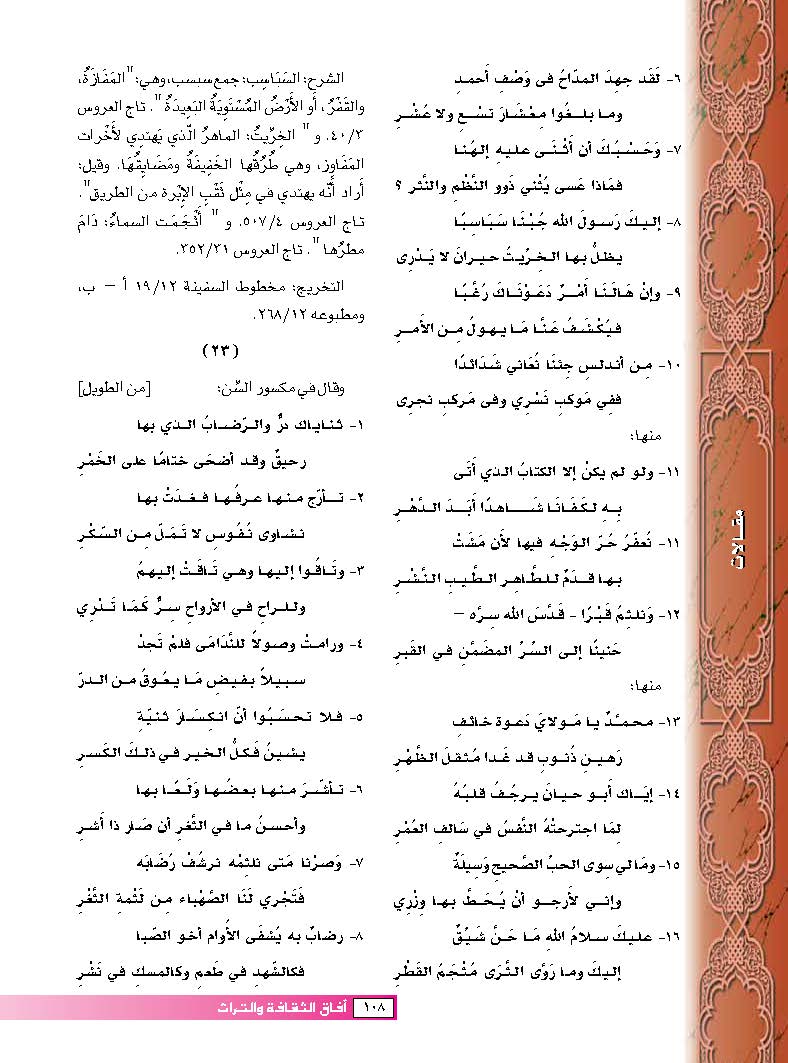 ٦- لَقَد جهدَ المدّاحُ فى وَصْفِ أَحمدِ
وما بلغُوا مِعْشَارَ تسْعٍ ولا عُشْرِ
٧- وَحَسْبُكَ أن أَثْنَى عليهِ إلهُنا
فمَاذا عَسى يُثْني ذَوو النَّظْمِ والنَّثر ؟
٨- إليكَ رَسولَ الله جُبْنَا سَبَاسِبًا
يظلُّ بها الخرِّيتُ حيرانَ لا يَدْرِى
٩- وإنْ هَالَنَا أَمْرٌ دَعَوْنَاكَ رُغَّبًا
فيُكْشَفُ عَنَّا مَا يهولُ مِن الأَمرِ
١٠- مِن أندلسٍ جئنَا نُعَانِي شَدَائدًا
ففِي مَوكبٍ نَسْرِي وفى مَركبٍ نجرِى
منها:
١١- ولو لم يكنْ إلا الكتابُ الذي أتَى
بِهِ لكَفَانَا شَاهدًا أَبَدَ الدَّهْرِ
١١- نُعفّرُ حُرَّ الوَجْهِ فيها لأَن مَشَتْ
بها قدَمٌ للطَّاهرِ الطَّيبِ النَّشْرِ
١٢- وَنلثِمُ قَبْرًا - قَدَّسَ الله سِرَّه -
حَنينًا إلى السِّرِّ المضمَّنِ في القَبرِ
منها:
١٣- محمـّدٌ يا مَولايَ دَعوة خائفٍ
رَهينِ ذُنوبٍ قد غَدا مُثقلَ الظَّهْرِ
١٤- إيَّاك أَبو حيانَ يرجُفُ قلبُهُ
لِمَا اجترحتْهُ النَّفسُ في سَالفِ العُمْرِ
١٥- ومَا لي سِوى الحبِّ الصَّحيحِ وَسِيلَةٌ
وإنِّي لأَرجو أنْ يُحَطَّ بها وِزْرِي
١٦- عليكَ سلامُ اللهِ مَا حَنَّ شَيِّقٌ
إليكَ وما رَوَّى الثَّرَى مُثْجَمُ القَطْرِ
الشرح: السَّبَاسِب: جمع سبسب، وهي: "المَفَازَةُ،
والقَفْرُ، أَو الأَرْضُ المُسْتَوِيَةُ البَعِيدَةُ". تاج العروس
٤٠/٣. و " الخِرِّيتُ: الماهرُ الّذي يَهتدِي لأَخْرات
المَفَاوِزِ، وهي طُرُقُها الخَفِيفَةُ ومَضَايِقُهَا. وقيل:
أراد أَنَّه يهتدي في مِثْل ثَقْبِ الإِبْرة من الطريق".
تاج العروس ٥٠٧/٤. و " أَثْجَمَت السماءُ: دَامَ
مطرُها". تاج العروس ٣٥٢/٣١.
التخريج: مخطوط السفينة ١٩/١٢ أ – ب،
ومطبوعه ٢٦٨/١٢.
(٢٣)
وقال في مكسور السِّن: [من الطويل]
١- ثناياك درٌّ والرّضابُ الذي بها
رحيقٌ وقد أضحَى ختامًا على الخَمْرِ
٢- تأرّج منها عرفُها فغدَتْ بها
نشاوى نُفُوسٍ لا تَمَلّ مِن السّكْرِ
٣- وتَاقُوا إليها وهي تَاقَتْ إليهمُ
وللراح في الأرواحِ سِرٌّ كَمَا تَدْرِي
٤- ورامتْ وصولاً للنَّدَامَى فلمْ تَجدْ
سبيلاً بفيضِ مَا يعُوقُ من الدرّ
٥- فلا تحسَبُوا أنّ انكِسَارَ ثنيّةٍ
يشينُ فَكلُّ الخيرِ في ذلكَ الكَسرِ
٦- تأشّرَ منها بعضُها وَلَعًا بها
وأحسنُ ما في الثَّغرِ أن صَار ذا أَشرِ
٧- وَصرْنا مَتى نلثِمْه نرشُفْ رُضَابَه
فَتَجْرِي لَنَا الصَّهْباء مِن لَثْمةِ الثَّغْرِ
٨- رضابٌ به يُشفَى الأُوامِ أخو الصِّبا
فكالشّهدِ في طَعمٍ وكالمسكِ في نَشْرِ
مقالات
١٠٨ آفاق الثقافة والتراث